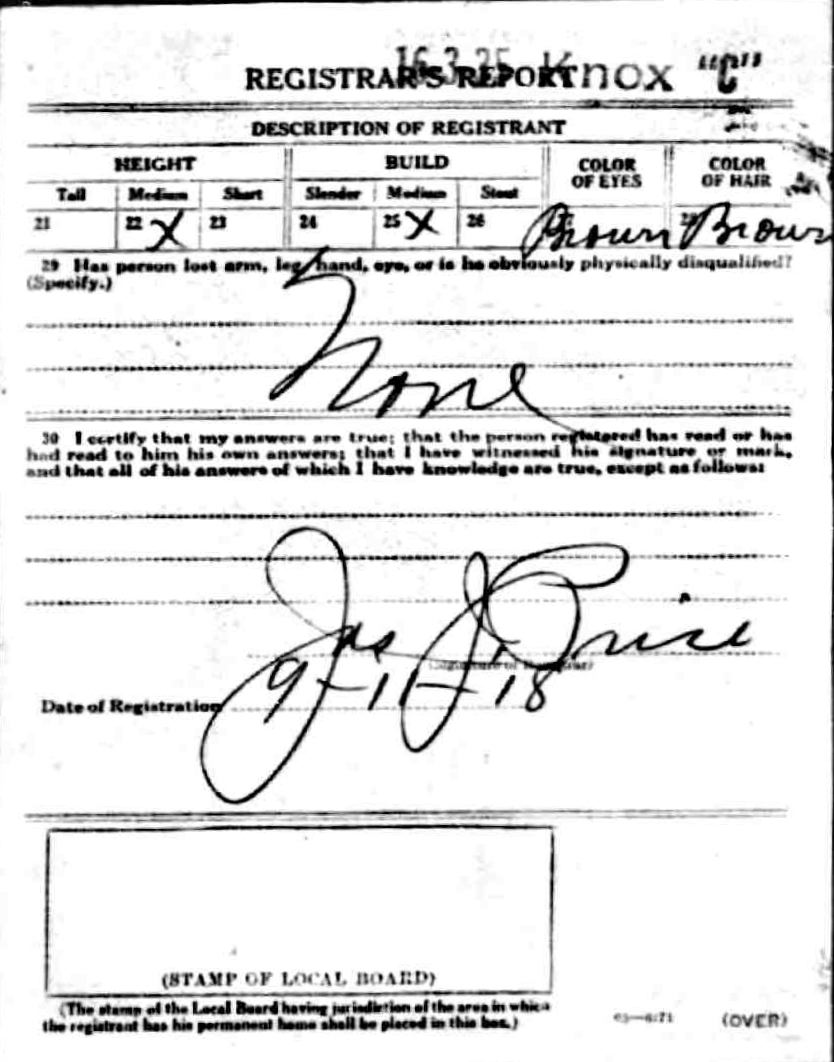 16-3-25 Knox "C"
REGISTRAR'S REPORT
DESCRIPTION OF REGISTRANT
HEIGHT BUILD COLOR OF EYES COLOR OF HAIR
Tall Medium Short Slender Medium Stout
21 22 X 23 24 25 X 26 Brown 28 Brown
29 Has person lost arm, leg, hand, eye, or is he obviously physically disqualified?
(Specify.)
None
30 I certify that my answers are true; that the person registered has read or has
had read to him his own answers; that I have witnessed his signature or mark,
and that all of his answers of which I have knowledge are true, except as follows:
Jas J. Price
(Signature of Registrar)
Date of Registration 9-11-18
(STAMP OF LOCAL BOARD)
(The stamp of the Local Board having jurisdiction of the area in which
the registrant has his permanent home shall be placed in this box.)
03—6171 (OVER)